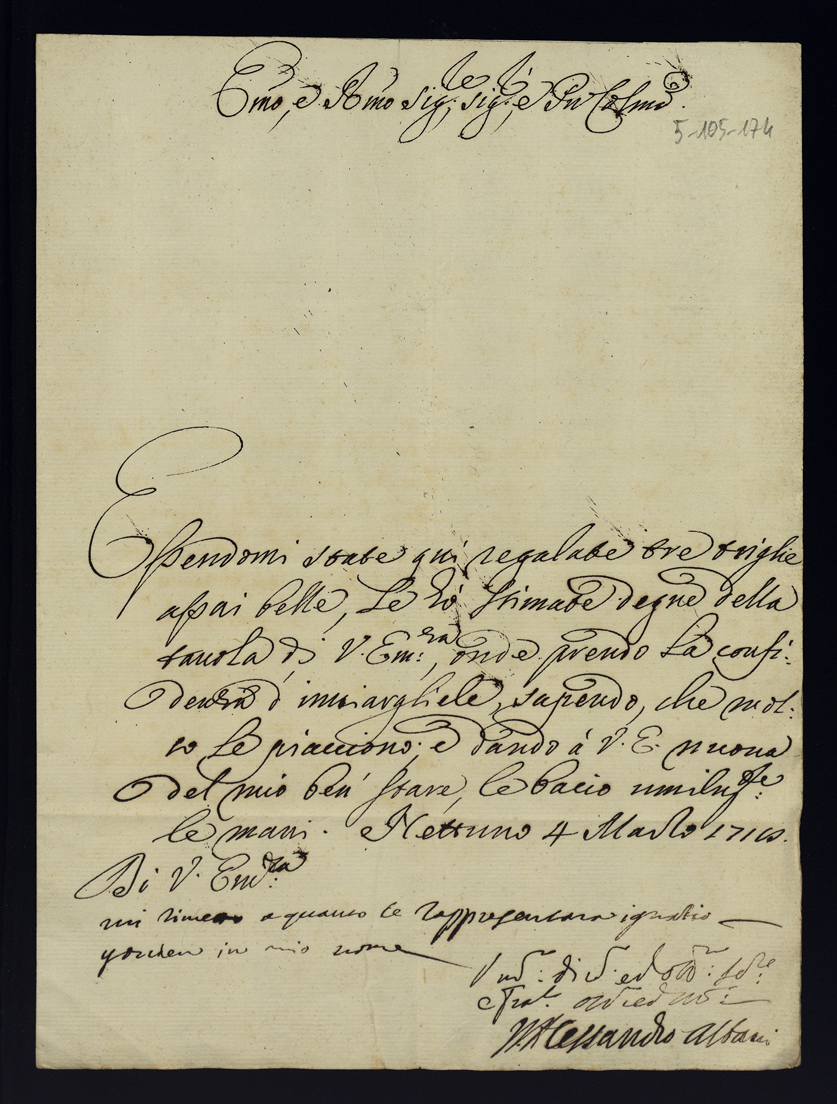 Emo, e Rmo Sig.re, Sig.r, e Pn Colmo.
5-105-174
Essendomi state quì regalate tre triglie
assai belle, Le hò stimate degne della
tauola di V. Em:za, onde prendo La confi:
denza d'inuiargliele, sapendo, che mol:
to Le piacciono; e dando à V. E. nuoua
del mio ben' stare, le bacio umilm.te
le mani. Nettuno 4 Marzo
Di V. Em:za
mi rimetto a quanto le rappresentara ignatio
in mio nome
Alessandro Albani